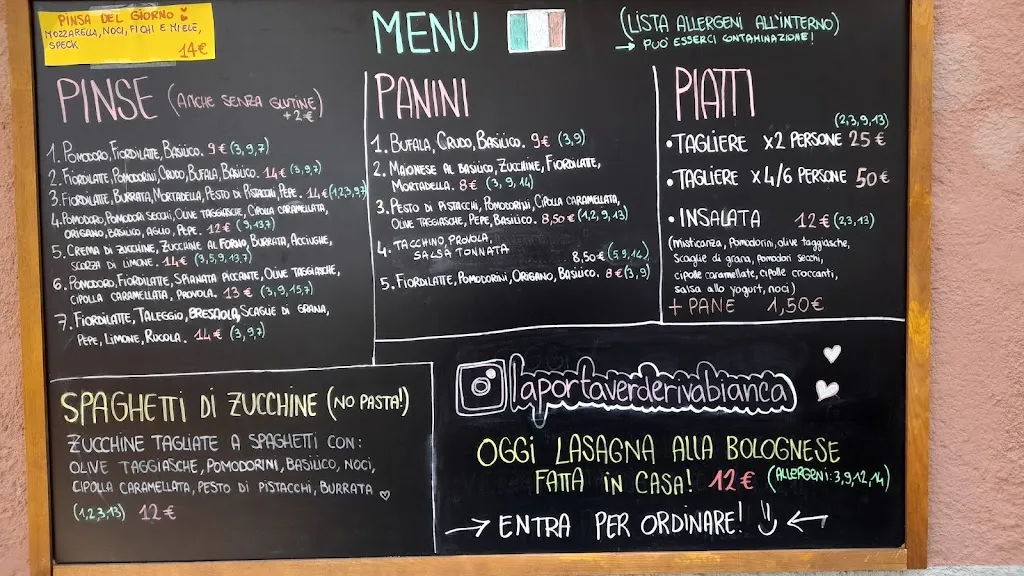 PINSA DEL GIORNO
MOZZARELLA, NOCI, FICHI E MIELE,
SPECK
14€
MENU
(LISTA ALLERGENI ALL'INTERNO)
→ PUO' ESSERCI CONTAMINAZIONE!
PINSE (ANCHE SENZA GLUTINE)
+2€
1. POMODORO, FIORDILATTE, BASILICO. 9€ (3,9,7)
2. FIORDILATTE, POMODORINI, CRUDO, BUFALA, BASILICO. 14€ (3,9,7)
3. FIORDILATTE, BURRATA, MORTADELLA, PESTO DI PISTACCHI, PEPE. 14€ (1,2,3,9,7)
4. POMODORO, POMODORI SECCHI, OLIVE TAGGIASCHE, CIPOLLA CARAMELLATA,
ORIGANO, BASILICO, AGLIO, PEPE. 12€ (9,13,7)
5. CREMA DI ZUCCHINE, ZUCCHINE AL FORNO, BURRATA, ACCIUGHE,
SCORZA DI LIMONE. 14€ (3,5,9,13,7)
6. POMODORO, FIORDILATTE, SPIANATA PICCANTE, OLIVE TAGGIASCHE,
CIPOLLA CARAMELLATA, PROVOLA. 13€ (3,9,15,7)
7. FIORDILATTE, TALEGGIO, BRESAOLA, SCAGLIE DI GRANA,
PEPE, LIMONE, RUCOLA. 14€ (3,9,7)
PANINI
1. BUFALA, CRUDO, BASILICO. 9€ (3,9)
2. MAIONESE AL BASILICO, ZUCCHINE, FIORDILATTE,
MORTADELLA. 8€ (3,9,14)
3. PESTO DI PISTACCHI, POMODORINI, CIPOLLA CARAMELLATA,
OLIVE TAGGIASCHE, PEPE, BASILICO. 8,50€ (1,2,9,13)
4. TACCHINO, PROVOLA,
SALSA TONNATA 8,50€ (5,9,14)
5. FIORDILATTE, POMODORINI, ORIGANO, BASILICO. 8€ (3,9)
PIATTI
(2,3,9,13)
• TAGLIERE x2 PERSONE 25€
• TAGLIERE x4/6 PERSONE 50€
• INSALATA 12€ (2,3,13)
(misticanza, Pomodorini, olive taggiasche,
Scaglie di grana, pomodori Secchi,
cipolle caramellate, cipolle croccanti,
salsa allo yogurt, noci)
+ PANE 1,50€
SPAGHETTI DI ZUCCHINE (NO PASTA!)
ZUCCHINE TAGLIATE A SPAGHETTI CON:
OLIVE TAGGIASCHE, POMODORINI, BASILICO, NOCI,
CIPOLLA CARAMELLATA, PESTO DI PISTACCHI, BURRATA ♡
(1,2,3,13) 12€
laportaverderivabianca
OGGI LASAGNA ALLA BOLOGNESE
FATTA IN CASA! 12€ (ALLERGENI: 3,9,12,14)
→ ENTRA PER ORDINARE! ←